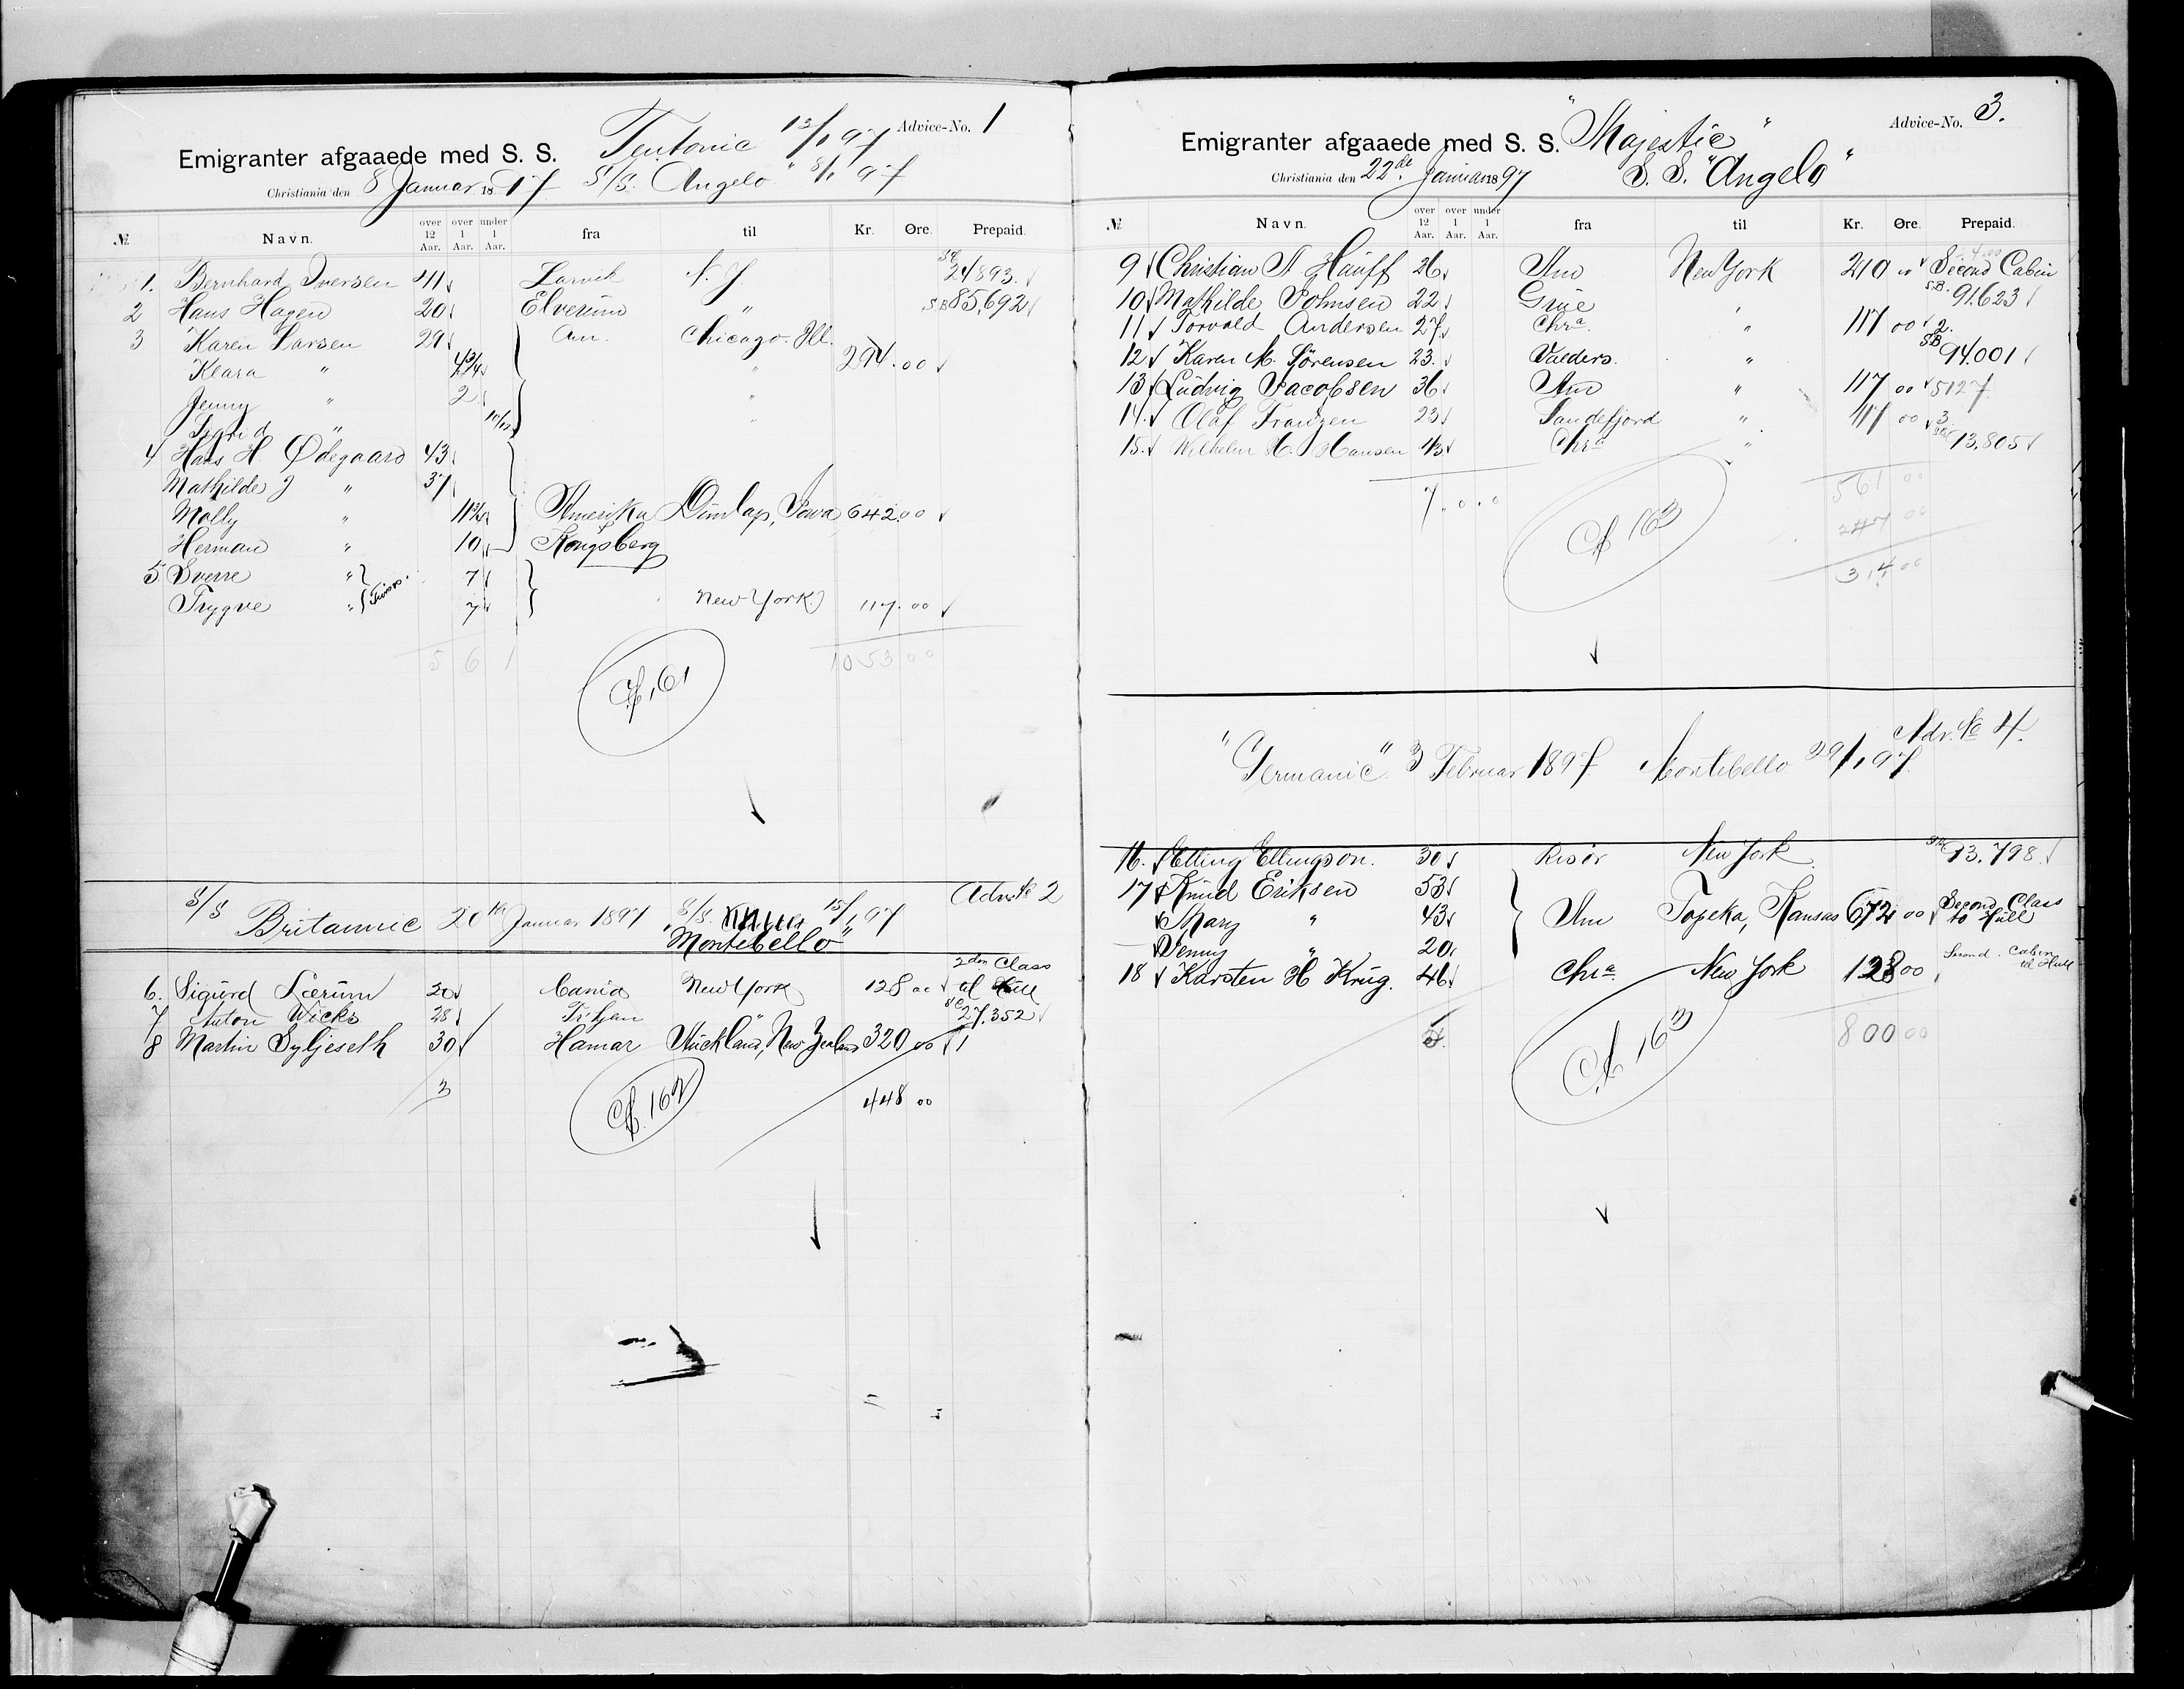 Emigranter afgaaede med S. S. Teutonic 13/1 97 Advice-No. 1
Christiania den 8 Januar 1897 S/S. Angelo 8/1 97
№ Navn. over 12 Aar. over 1 Aar. under 1 Aar. fra til Kr. Øre. Prepaid.
1. Bernhard Iversen 41 Larvik N. Y. 24893.
2 Hans Hagen 20 Elverum " SB 85,692
3 Karen Larsen 29 Am. Chicago. Ill.
Klara " " 294.00
Jenny " 2 "
Sigrid " 10/12 "
4 Hans H Ødegaard 43
Mathilde J " 37
Molly " 11 Amerika Dunlap, Iowa 642.00
Herman " 10 Kongsberg
5 Sverre " 7
Trygve " Twins. 7 New York 117.00
5 6 1 1053 00
161
S/S Britannic 20de Januar 1897 S/S. 15/1 97 Adv. № 2
"Montebello"
2den Class
6. Sigurd Lærum 20 Cania New York 128 00 til Hull
7 Anton Wicks 28 " 27.352
8 Martin Syljeseth 30 Hamar Auckland, New Zealand 320 00 1
3 448 00
162
Emigranter afgaaede med S. S. "Majestic" Advice-No. 3.
Christiania den 22de Januar 1897 S. S. "Angelo"
№ Navn. over 12 Aar. over 1 Aar. under 1 Aar. fra til Kr. Øre. Prepaid.
9 Christian A Hauff 26 Am New York 210 00 Second Cabin
10 Mathilde Johnsen 22 Grue " SB. 91.623
11 Torvald Andersen 27 Chra. " 117 00 2.
12 Karen M. Sörensen 23. Valders. " SB 94.001
13 Ludvig Jacobsen 36 Am " 117 00 5127
14. Olaf Franzen 23 Sandefjord " 117 00 3
15. Wilhelm H. Hansen 43 Chra " 13,805
7. 0. 0 561 00
163 247 00
314 00
Adv. № 4.
"Germanic" 3 Februar 1897 Montebello 29/1 97.
16. Elling Ellingson. 30 Risør New York 13.798.
17 Knud Eriksen 53
Mary " 43 Am Topeka, Kansas 672 00 Second Class to Hull
Jenny " 20
18 Karsten H Krug. 46 Chra New York 128 00 Second. Cabin til Hull
5. 800 00
163